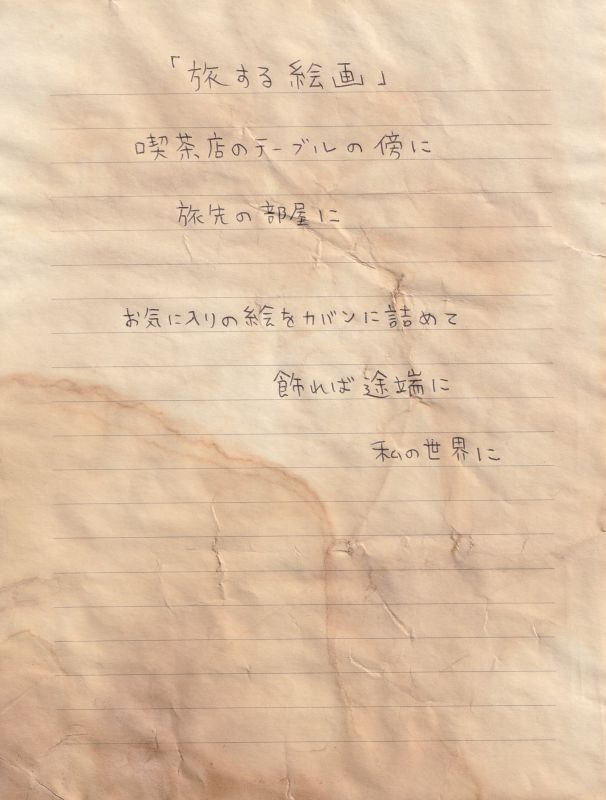 「旅する絵画」
喫茶店のテーブルの傍に
旅先の部屋に
お気に入りの絵をカバンに詰めて
飾れば途端に
私の世界に